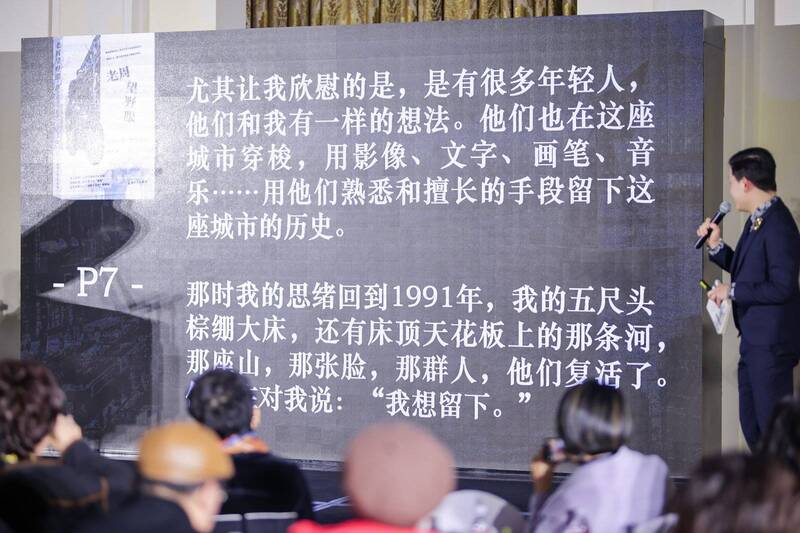 老周
望野眼
- P7 -
尤其让我欣慰的是，是有很多年轻人，
他们和我有一样的想法。他们也在这座
城市穿梭，用影像、文字、画笔、音
乐……用他们熟悉和擅长的手段留下这
座城市的历史。
那时我的思绪回到1991年，我的五尺头
棕绷大床，还有床顶天花板上的那条河，
那座山，那张脸，那群人，他们复活了。
对我说：“我想留下。”